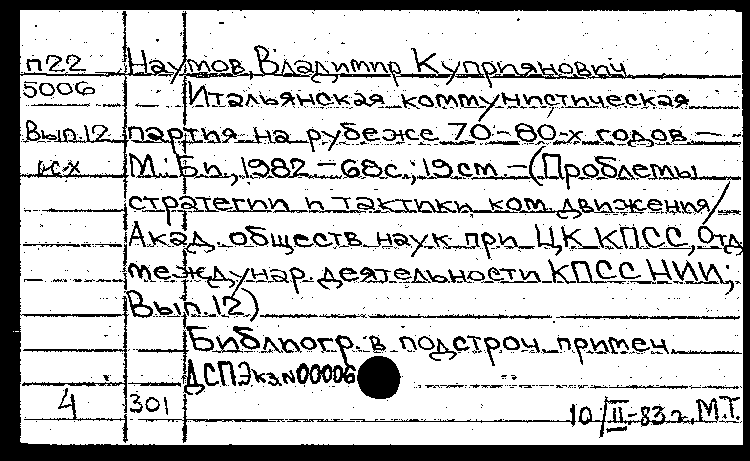 п22 Наумов, Владимир Куприянович
5006 Итальянская коммунистическая
Вып.12 партия на рубеже 70-80-х годов –
М.: Б.и., 1982 – 68с.; 19 см – (Проблемы
стратегии и тактики ком. движения/
Акад. обществ наук при ЦК КПСС, Отд
междунар. деятельности КПСС НИИ;
Вып. 12)
Библиогр. в подстроч. примеч.
ДСП Экз.N 00006
4 301 10/II-83 г. М.Т.